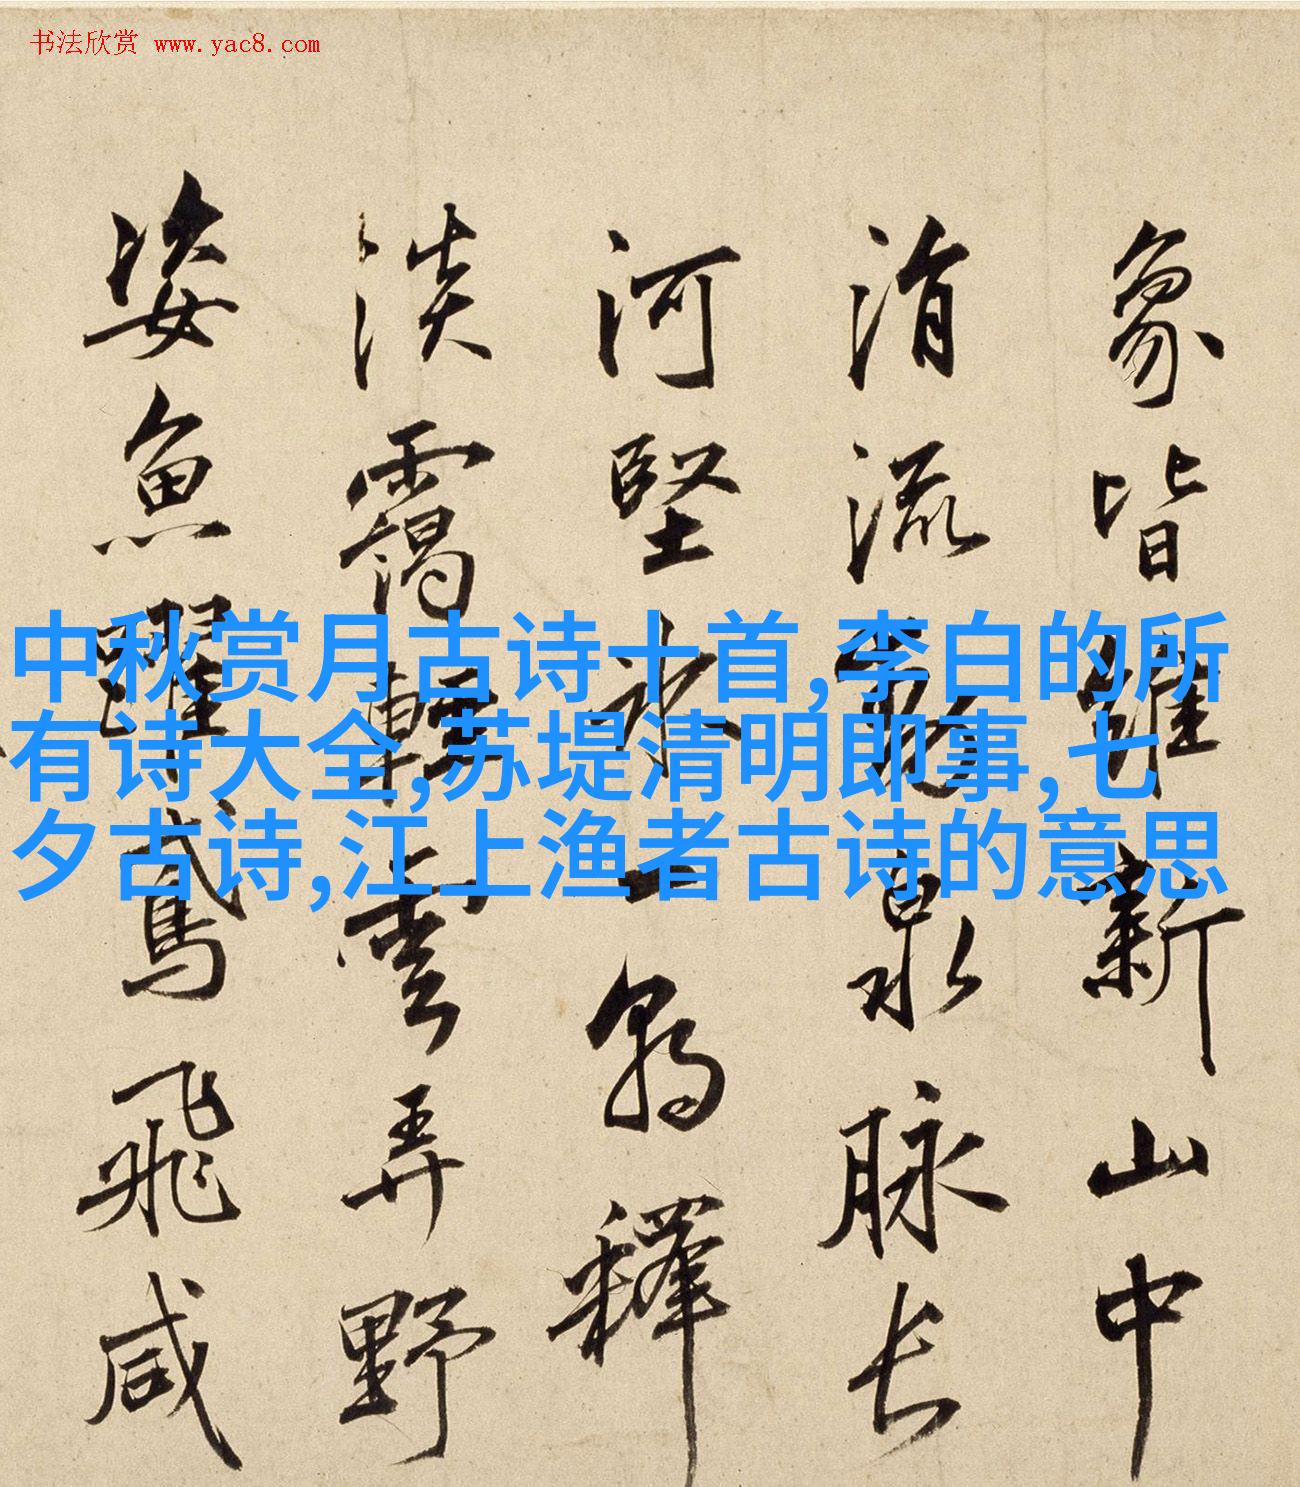 书法欣赏 www.yac8.com
中秋赏月古诗十首,李白的所
有诗大全,苏堤清明即事,七
夕古诗,江上渔者古诗的意思
象皆維新山中
涓流泉脉长
河堅冰一朝釋
淡靄輕雲弄野
姿魚躍鳶飛咸